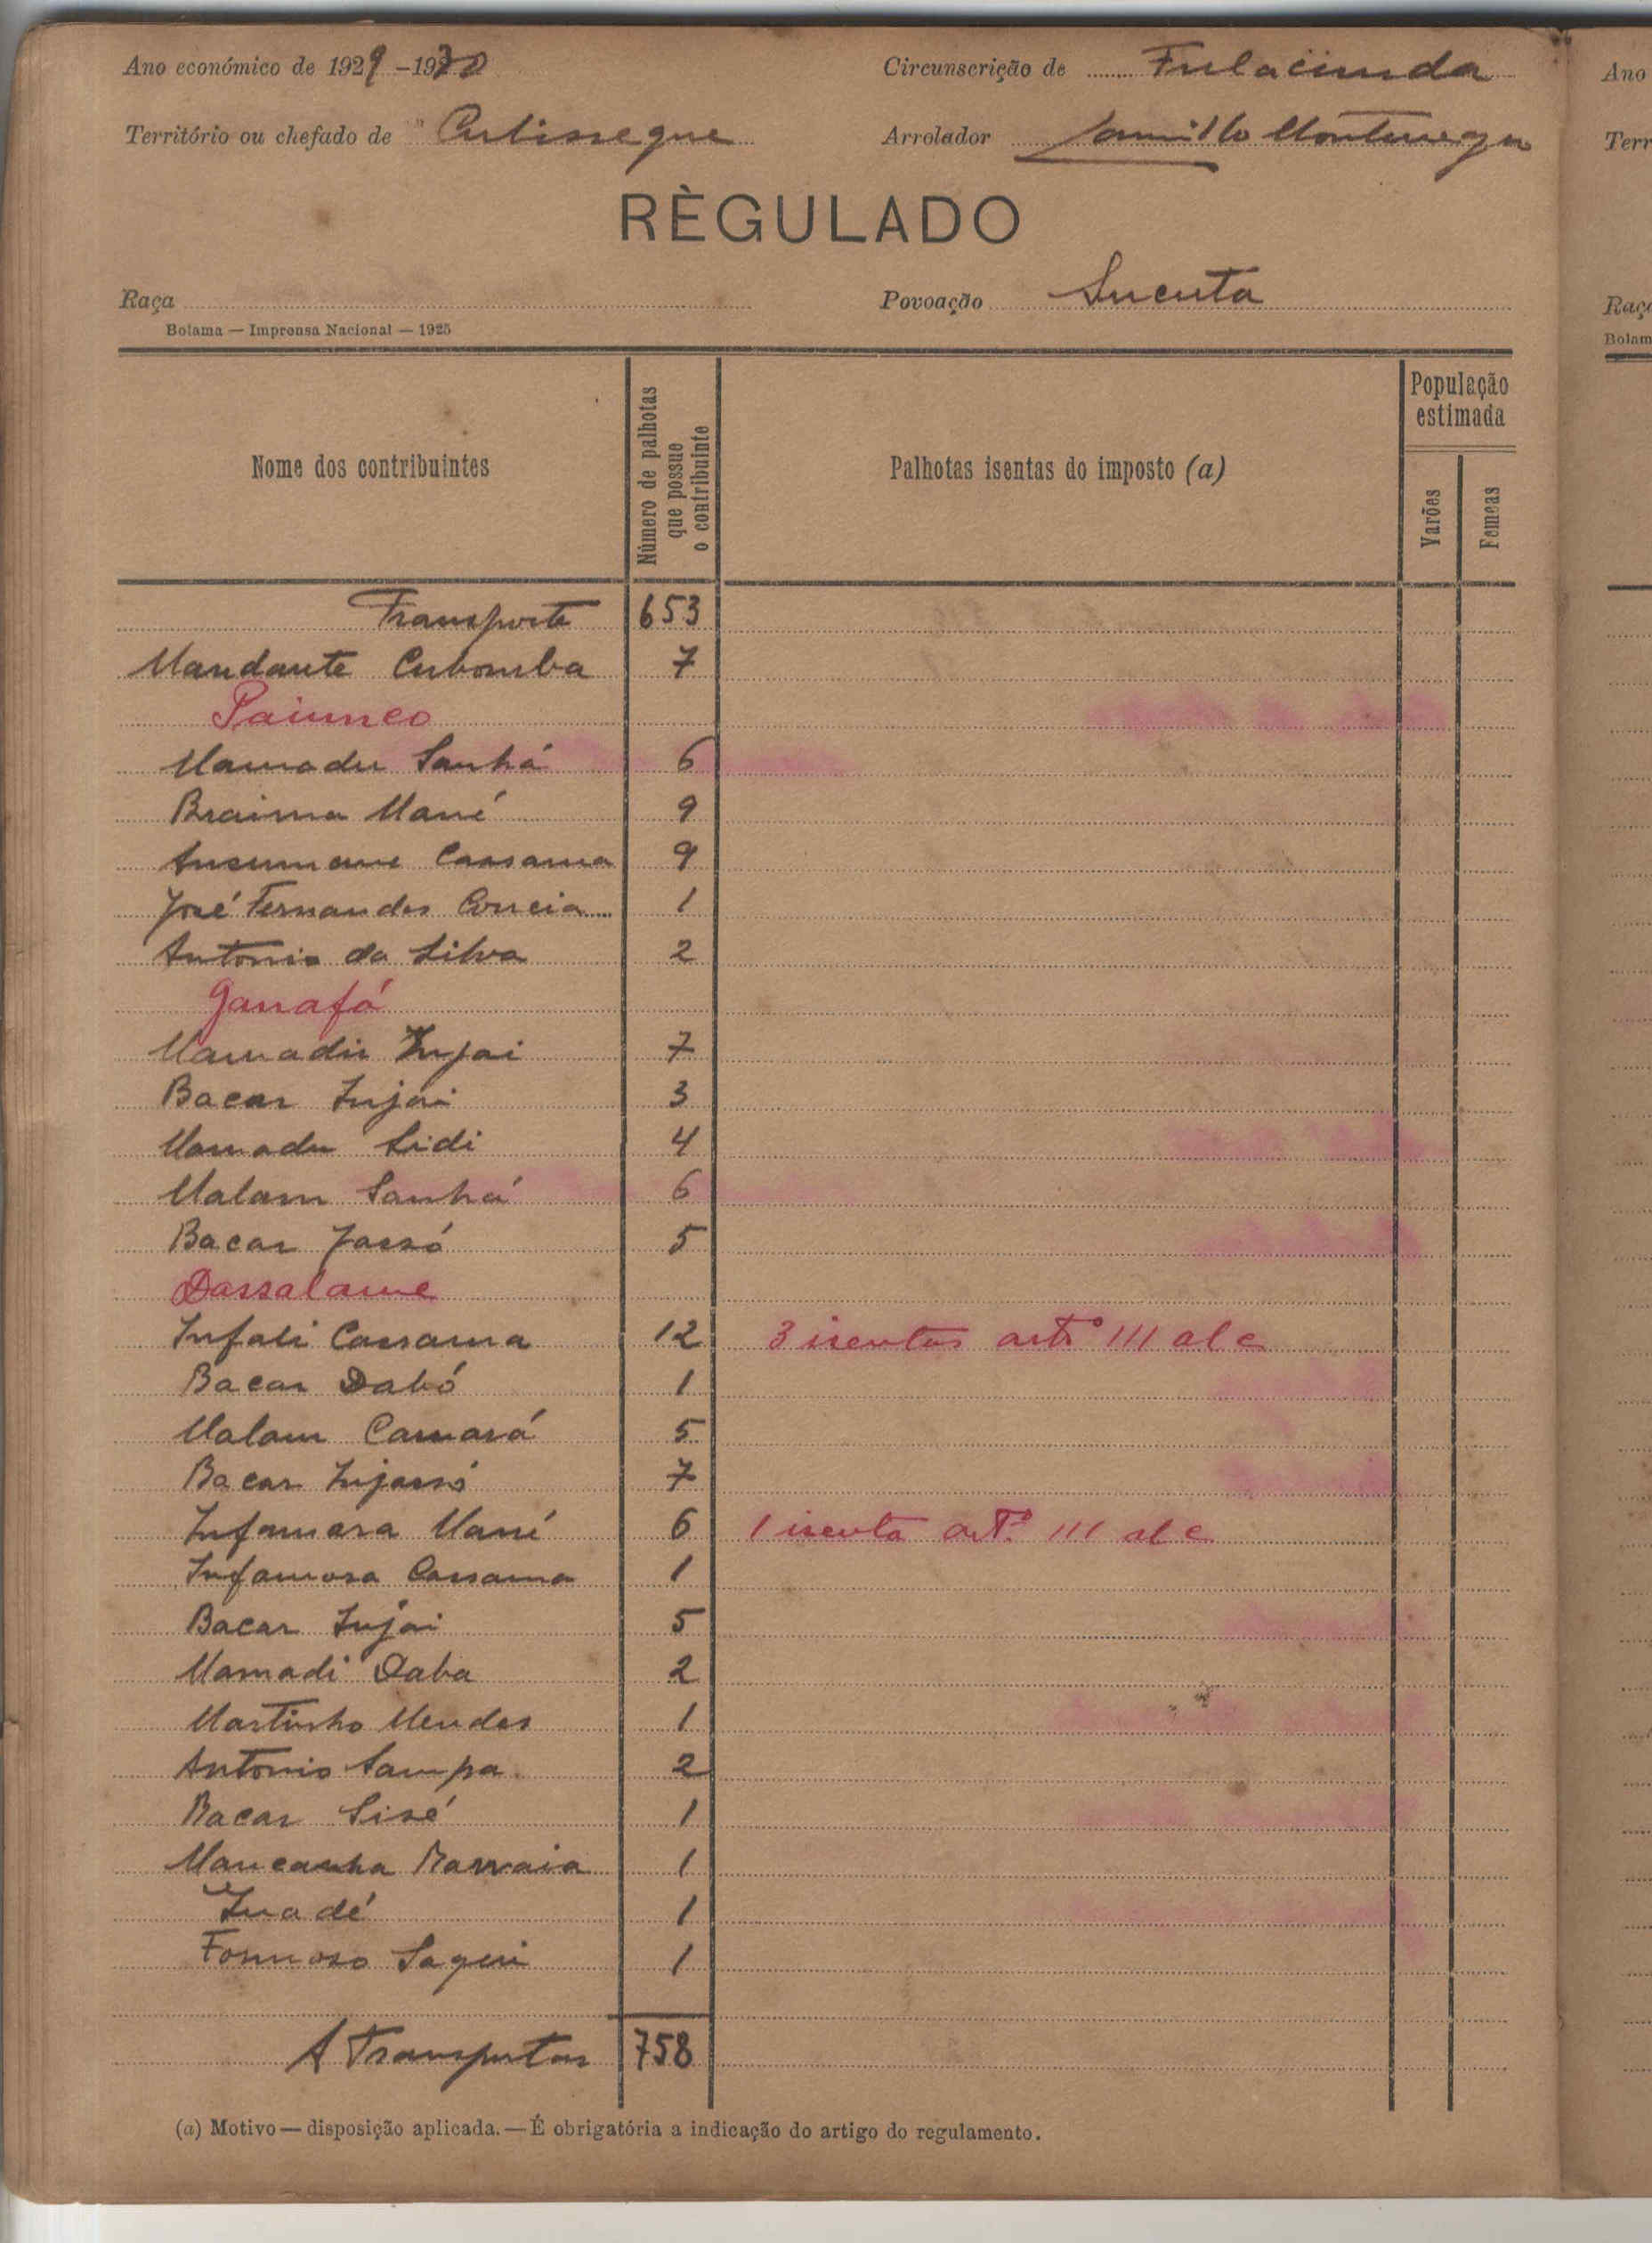 Ano económico de 1929-1930
Circunscrição de Fulacunda
Território ou chefado de Cubisseque
Arrolador Camillo Montenegro
RÈGULADO
Raça
Povoação Sucuta
Bolama — Imprensa Nacional — 1925
Nome dos contribuintes
Número de palhotas
que possue
o contribuinte
Palhotas isentas do imposto (a)
População
estimada
Varões
Femeas
Transporte 653
Mandante Cubomba 7
Paiunco
Mamadu Sanhá 6
Braima Mané 9
Ansumane Cassama 9
José Fernandes Correia 1
Antonio da Silva 2
Ganafá
Mamadu Injai 7
Bacar Injai 3
Mamadu Sidi 4
Malam Sanhá 6
Bacar Jassó 5
Dassalame
Infali Cassama 12 3 isentas artº 111 al c
Bacar Dabó 1
Malam Camará 5
Bacar Injassó 7
Infamara Mané 6 1 isenta artº 111 al c
Infamara Cassama 1
Bacar Injai 5
Mamadi Daba 2
Martinho Mendes 1
Antonio Sampa 2
Bacar Sisé 1
Mancanha 1
Inadé 1
Formoso 1
A Transportar 758
(a) Motivo — disposição aplicada. — É obrigatória a indicação do artigo do regulamento.
Ano
Terr
Raça
Bolam